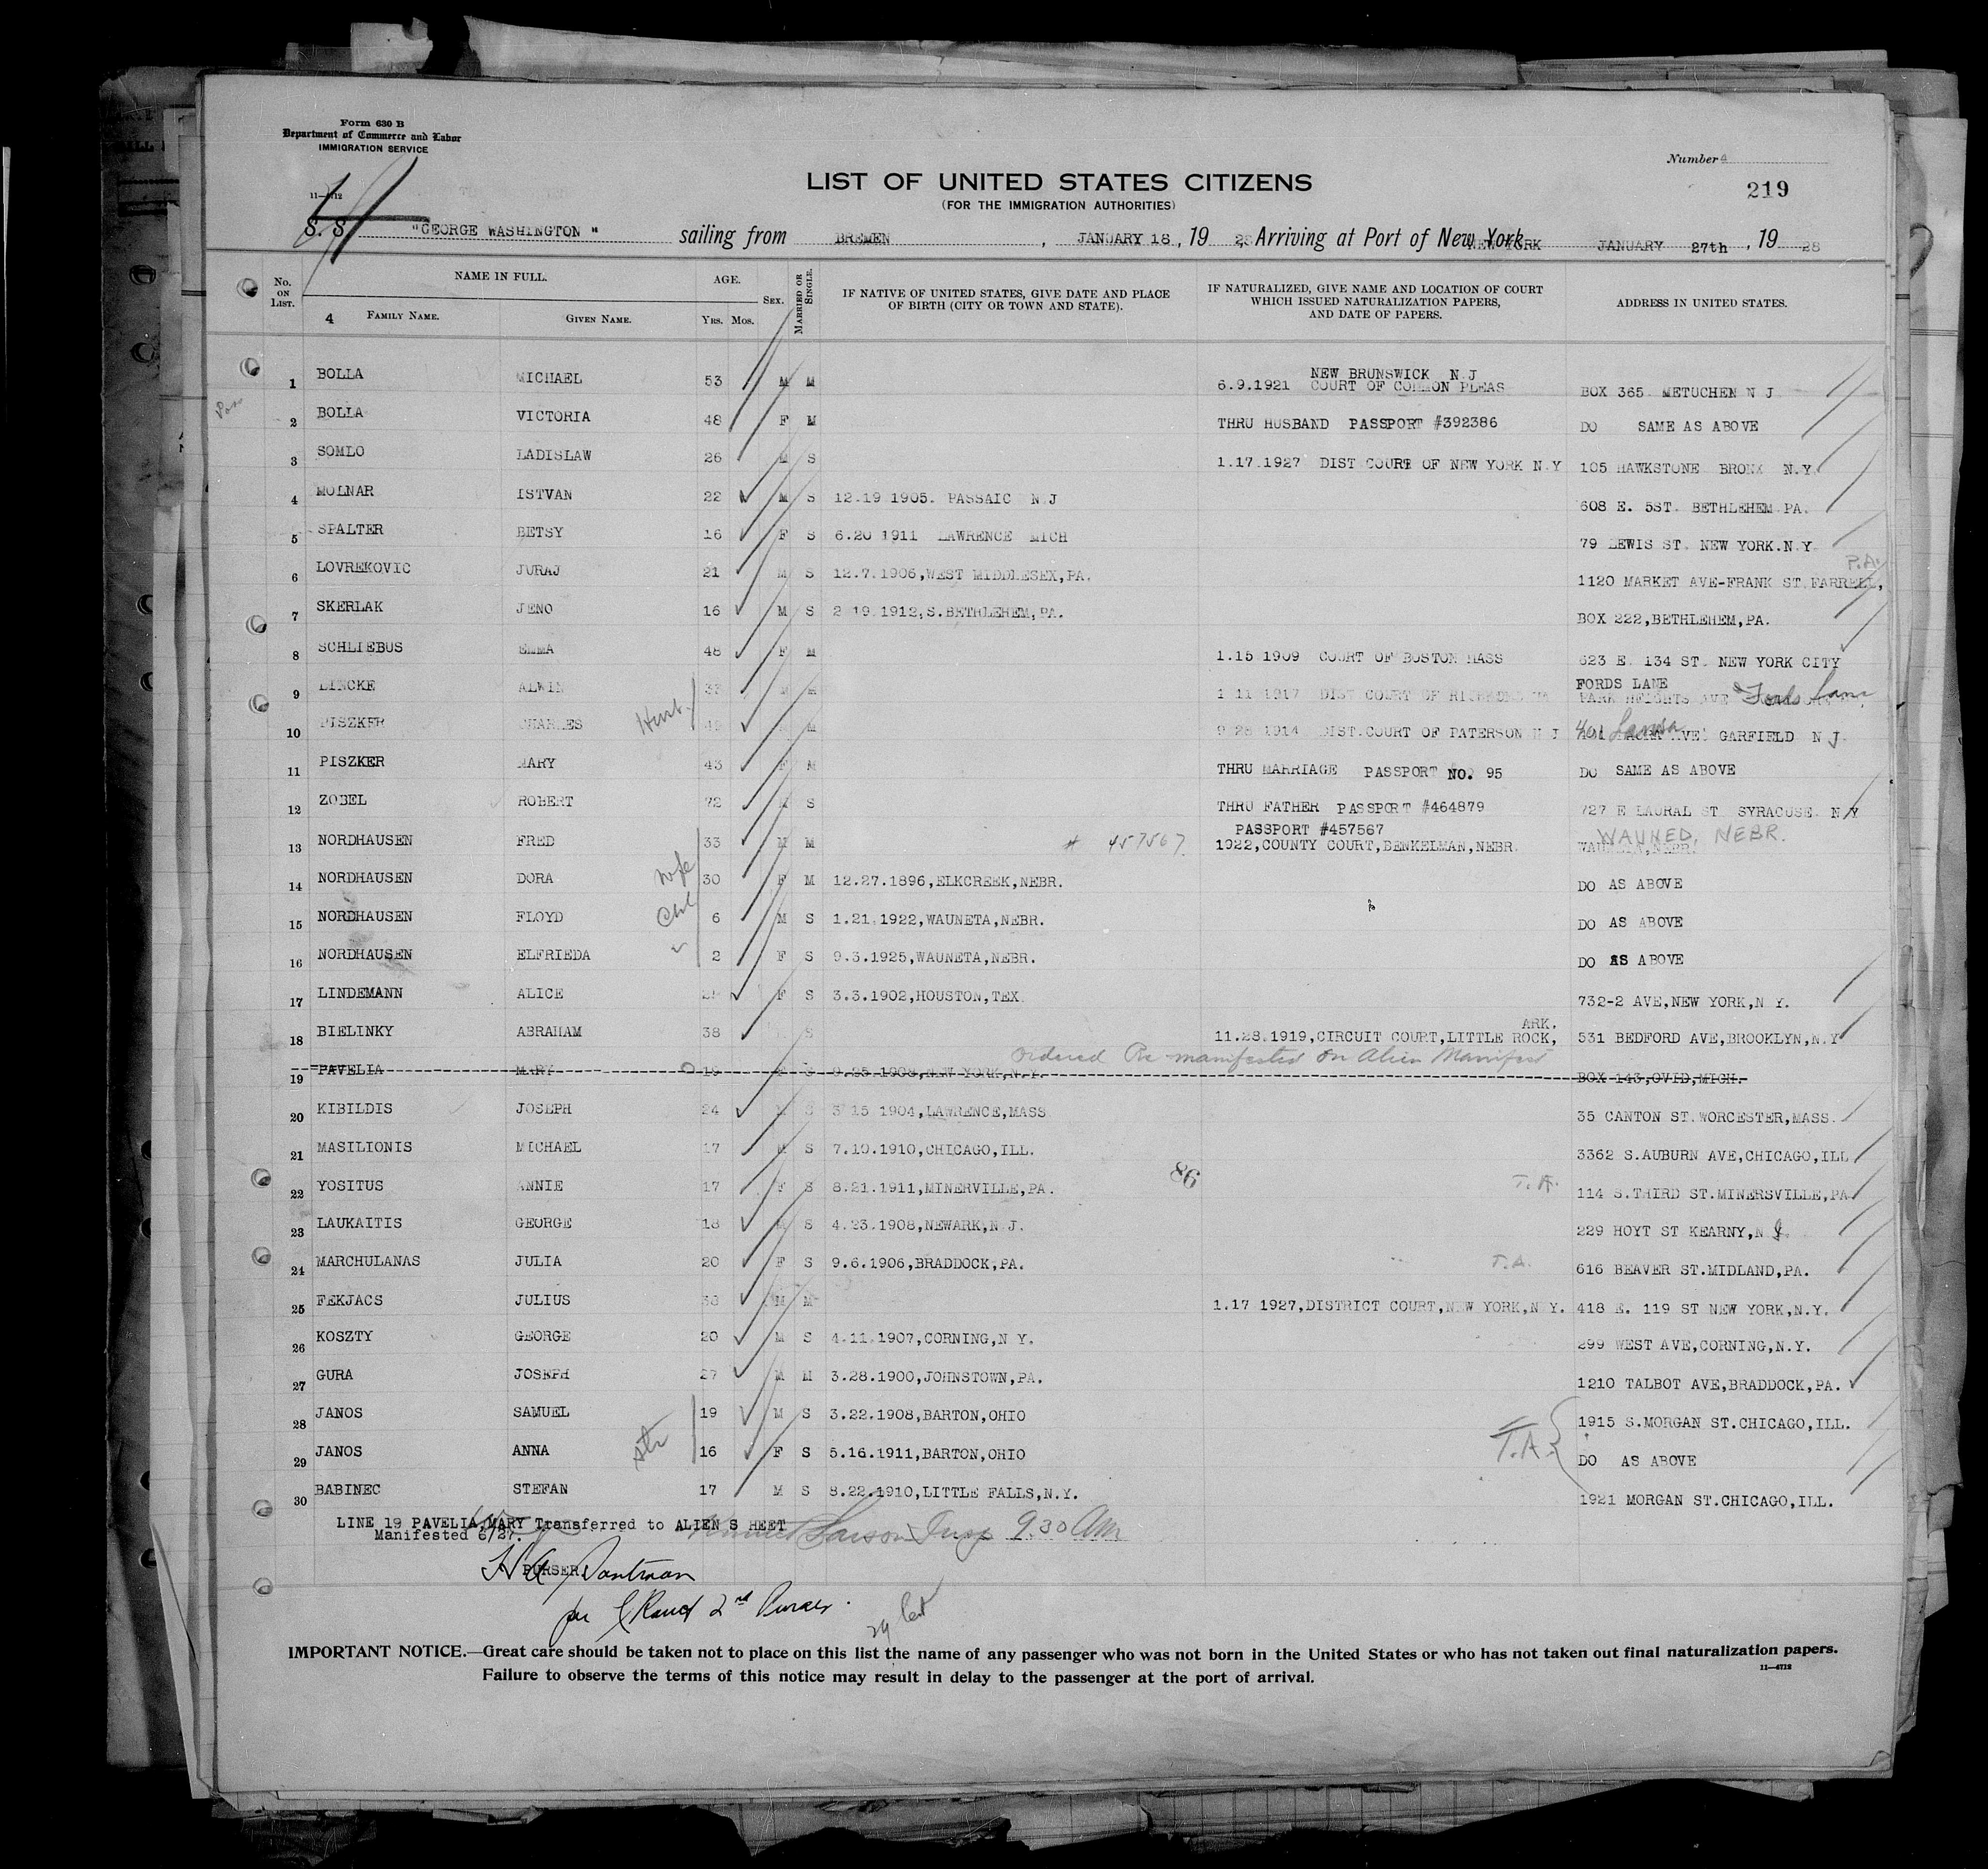 Form 630 B
Department of Commerce and Labor
IMMIGRATION SERVICE
Number 4
219
LIST OF UNITED STATES CITIZENS
(FOR THE IMMIGRATION AUTHORITIES)
S. S. "GEORGE WASHINGTON" sailing from BREMEN, JANUARY 18, 19 28, Arriving at Port of New York NEW YORK JANUARY 27th, 19 28
No. ON LIST. NAME IN FULL. AGE. SEX. MARRIED OR SINGLE. IF NATIVE OF UNITED STATES, GIVE DATE AND PLACE OF BIRTH (CITY OR TOWN AND STATE). IF NATURALIZED, GIVE NAME AND LOCATION OF COURT WHICH ISSUED NATURALIZATION PAPERS, AND DATE OF PAPERS. ADDRESS IN UNITED STATES.
4 FAMILY NAME. GIVEN NAME. YRS. MOS.
NEW BRUNSWICK N J
1 BOLLA MICHAEL 53 M M 6.9.1921 COURT OF COMMON PLEAS BOX 365 METUCHEN N J
2 BOLLA VICTORIA 48 F M THRU HUSBAND PASSPORT #392386 DO SAME AS ABOVE
3 SOMLO LADISLAW 26 M S 1.17.1927 DIST COURT OF NEW YORK N.Y 105 HAWKSTONE BRONX N.Y.
4 MOLNAR ISTVAN 22 M S 12.19 1905. PASSAIC N.J 608 E. 5ST. BETHLEHEM PA.
5 SPALTER BETSY 16 F S 6.20 1911 LAWRENCE MICH 79 LEWIS ST. NEW YORK.N.Y.
P.A.
6 LOVREKOVIC JURAJ 21 M S 12.7.1906,WEST MIDDLESEX,PA. 1120 MARKET AVE-FRANK ST.FARRELL,
7 SKERLAK JENO 16 M S 2 19.1912,S.BETHLEHEM,PA. BOX 222,BETHLEHEM,PA.
8 SCHLIEBUS EMMA 48 F M 1.15 1909 COURT OF BOSTON MASS 623 E. 134 ST. NEW YORK CITY
FORDS LANE
9 LINCKE ALWIN 33 M M 1 11 1917 DIST COURT OF PARK HEIGHTS AVE Fords Lane
10 PISZKER CHARLES 49 M M 9 28 1914 DIST.COURT OF PATERSON N J GARFIELD N J.
Husb.
11 PISZKER MARY 43 F M THRU MARRIAGE PASSPORT NO. 95 DO SAME AS ABOVE
12 ZOBEL ROBERT 72 M S THRU FATHER PASSPORT #464879 727 E LAURAL ST. SYRACUSE N Y
PASSPORT #457567 WAUNED, NEBR.
13 NORDHAUSEN FRED 33 M M # 457567 1922,COUNTY COURT,BENKELMAN,NEBR.
14 NORDHAUSEN DORA wfe 30 F M 12.27.1896,ELKCREEK,NEBR. DO AS ABOVE
15 NORDHAUSEN FLOYD Chl 6 M S 1.21.1922,WAUNETA,NEBR. DO AS ABOVE
16 NORDHAUSEN ELFRIEDA " 2 F S 9.3.1925,WAUNETA,NEBR. DO AS ABOVE
17 LINDEMANN ALICE F S 3.3.1902,HOUSTON,TEX. 732-2 AVE,NEW YORK,N Y.
ARK.
18 BIELINKY ABRAHAM 38 S 11.28.1919,CIRCUIT COURT,LITTLE ROCK, 531 BEDFORD AVE,BROOKLYN,N.Y
Ordered Re-manifested on Alien Manifest
19 PAVELIA MARY 19 F S 9.25.1908,NEW YORK,N.Y. BOX 143,OVID,MICH.
20 KIBILDIS JOSEPH 24 M S 3 15 1904,LAWRENCE,MASS 35 CANTON ST.WORCESTER,MASS.
21 MASILIONIS MICHAEL 17 M S 7.10.1910,CHICAGO,ILL. 3362 S.AUBURN AVE,CHICAGO,ILL
86
22 YOSITUS ANNIE 17 F S 8.21.1911,MINERVILLE,PA. T.A. 114 S.THIRD ST.MINERSVILLE,PA
23 LAUKAITIS GEORGE 18 M S 4.23.1908,NEWARK,N.J. 229 HOYT ST KEARNY,N J.
24 MARCHULANAS JULIA 20 F S 9.6.1906,BRADDOCK,PA. T.A. 616 BEAVER ST.MIDLAND,PA.
25 FEKJACS JULIUS 38 M M 1.17 1927,DISTRICT COURT,NEW YORK,N.Y. 418 E. 119 ST NEW YORK,N.Y.
26 KOSZTY GEORGE 20 M S 4.11.1907,CORNING,N Y. 299 WEST AVE,CORNING,N.Y.
27 GURA JOSEPH 27 M M 3.28.1900,JOHNSTOWN,PA. 1210 TALBOT AVE,BRADDOCK,PA.
28 JANOS SAMUEL 19 M S 3.22.1908,BARTON,OHIO 1915 S.MORGAN ST.CHICAGO,ILL.
29 JANOS ANNA str 16 F S 5.16.1911,BARTON,OHIO T.A. DO AS ABOVE
30 BABINEC STEFAN 17 M S 8.22.1910,LITTLE FALLS,N.Y. 1921 MORGAN ST.CHICAGO,ILL.
LINE 19 PAVELIA,MARY Transferred to ALIEN S HEET
Manifested 6/27. Larson Insp 9.30 AM
PURSER
2nd Purser.
IMPORTANT NOTICE.—Great care should be taken not to place on this list the name of any passenger who was not born in the United States or who has not taken out final naturalization papers.
Failure to observe the terms of this notice may result in delay to the passenger at the port of arrival.
11—4712